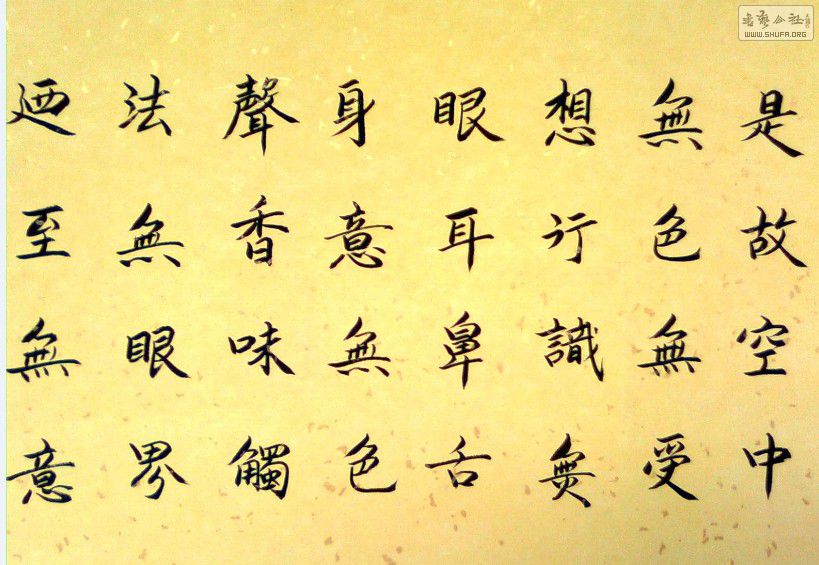 是故空中
無色無受
想行識無
眼耳鼻舌
身意無色
聲香味觸
法無眼界
廼至無意
WWW.SHUFA.ORG